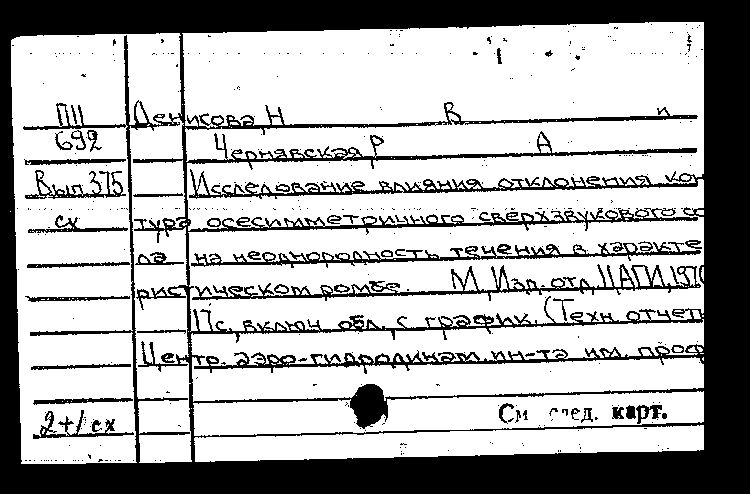 ПII Денисова, Н В и
692 Чернявская Р А
Вып. 375 Исследование влияния отклонения кон
сх тура осесимметричного сверхзвукового со
ла на неоднородность течения в характе
ристическом ромбе. М., Изд. отд. ЦАГИ, 197
17с., включ. обл., с график. (Техн. отчеты
Центр. аэро-гидродинам. ин-та им. проф
2+1 сх См след. карт.